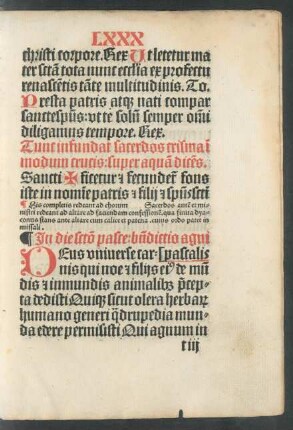 LXXX
christi corpore. Rex Ut letetur ma
ter sctā tota nunc ecclīa ex profectu
renascētis tāte multitudinis. To.
Presta patris atqȝ nati compar
sanctespūs: vt te solū semper omī
diligamus tempore. Rex.
Tunc infundat sacerdos crisma ī
modum crucis: super aquā dicēs.
Sancti ✠ ficetur ⁊ fecundet fons
iste in nomīe patris ⁊ filij ⁊ spūscti
¶ His completis redeant ad chorum Sacerdos
nistri redeant ad altare ad faciendam confessionē. qua finita dya-
conus stans ante altare cum calice et patena
missali.
¶ In die sctō pasce: bñdictio agni
DEus vniuerse car
nis qui noe ⁊ filijs eiꝰ de mū
dis ⁊ immundis animalibꝫ p̄cep
ta dedisti Quiqȝ sicut olera herbarꝫ
humano generi q̄drupedia mun
da edere permisisti Qui agnum in